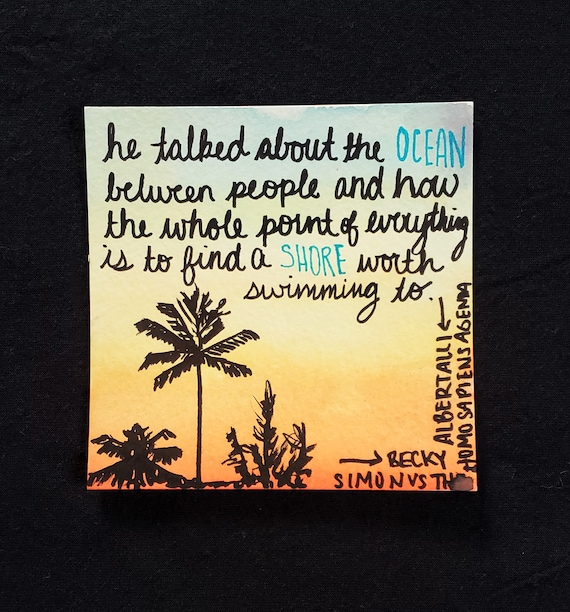 he talked about the OCEAN
between people and how
the whole point of everything
is to find a SHORE worth
swimming to.
→ BECKY ALBERTALLI ←
SIMON VS THE HOMO SAPIENS AGENDA